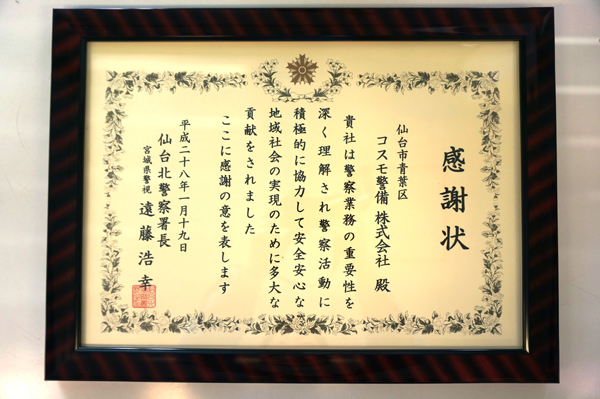 感謝状
仙台市青葉区
コスモ警備株式会社 殿
貴社は警察業務の重要性を
深く理解され警察活動に
積極的に協力して安全安心な
地域社会の実現のために多大な
貢献をされました
ここに感謝の意を表します
平成二十八年一月十九日
仙台北警察署長
宮城県警視 遠藤浩幸